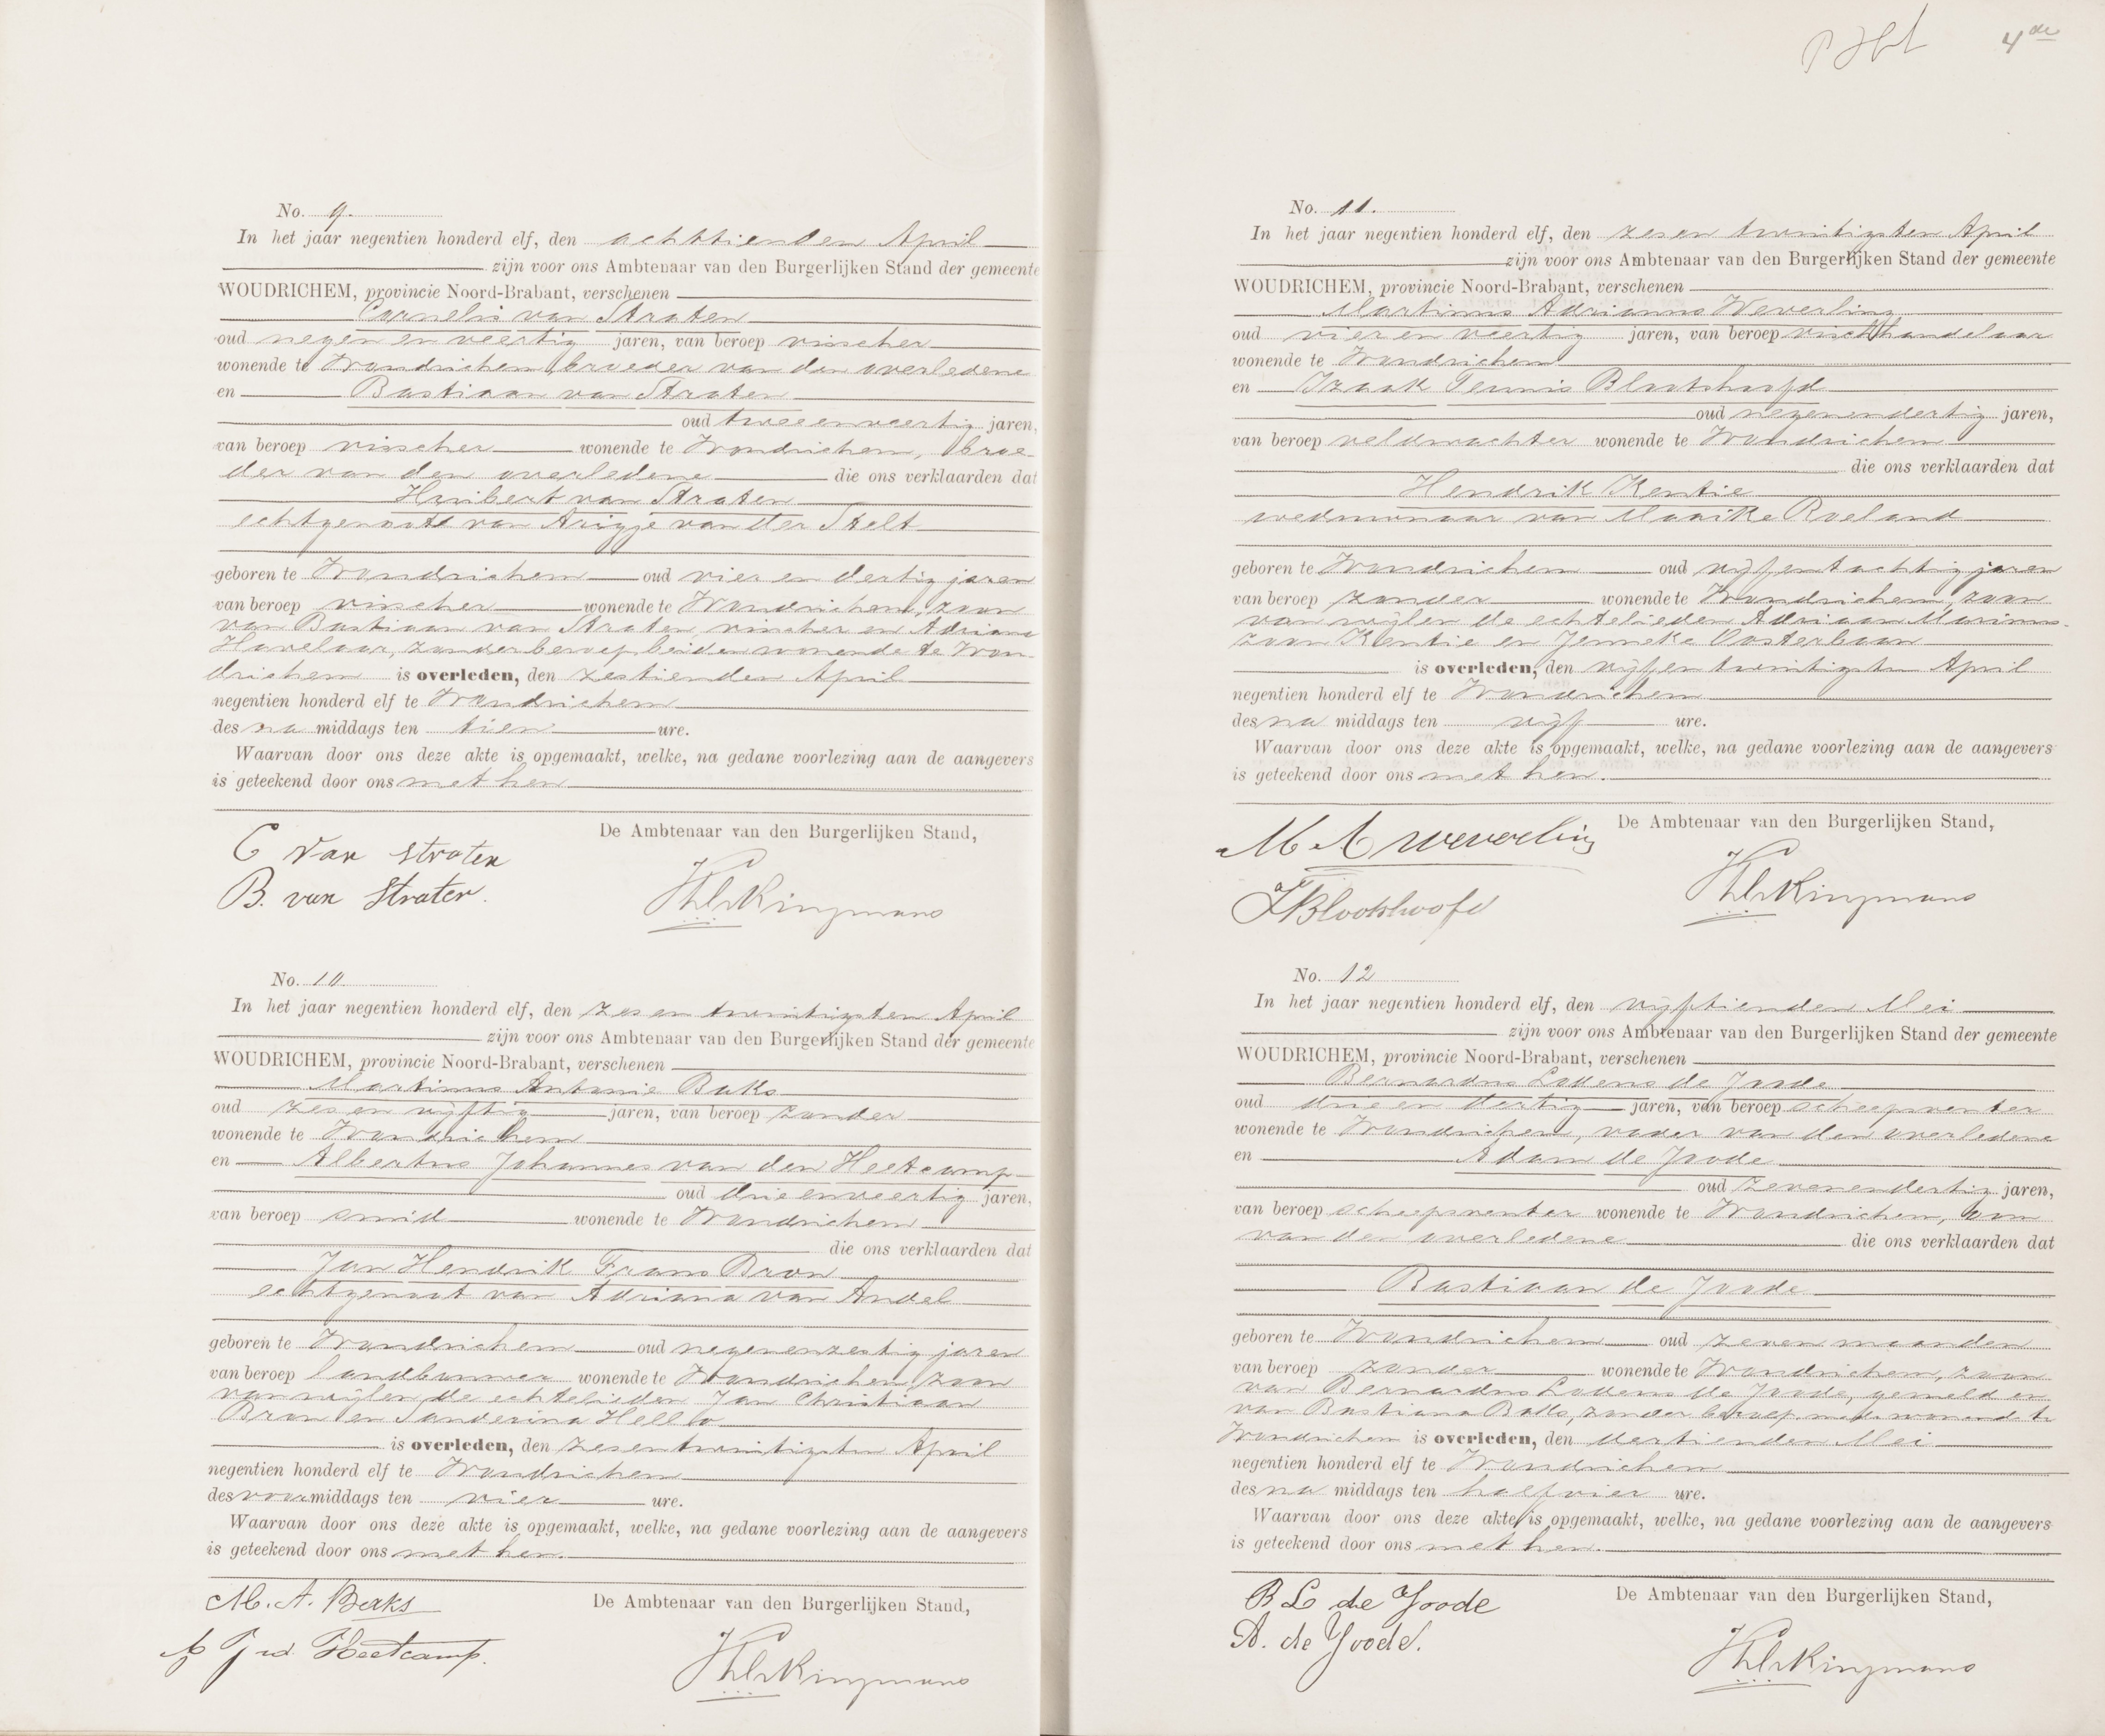 No. 9.
In het jaar negentien honderd elf, den achttienden April
zijn voor ons Ambtenaar van den Burgerlijken Stand der gemeente
WOUDRICHEM, provincie Noord-Brabant, verschenen
Cornelis van Straten
oud negen en veertig jaren, van beroep visscher
wonende te Woudrichem, broeder van den overledene
en Bastiaan van Straten
oud tweeenveertig jaren,
van beroep visscher wonende te Woudrichem, broe-
der van den overledene die ons verklaarden dat
Huibert van Straten
echtgenoot van Arigje van der Stelt
geboren te Woudrichem oud vier en dertig jaren
van beroep visscher wonende te Woudrichem, zoon
van Bastiaan van Straten, visscher en Adriana
Havelaar, zonder beroep beiden wonende te Wou-
drichem is overleden, den zestienden April
negentien honderd elf te Woudrichem
des na middags ten tien ure.
Waarvan door ons deze akte is opgemaakt, welke, na gedane voorlezing aan de aangevers
is geteekend door ons met hen
De Ambtenaar van den Burgerlijken Stand,
C van Straten
B. van Straten.
No. 10.
In het jaar negentien honderd elf, den zes en twintigsten April
zijn voor ons Ambtenaar van den Burgerlijken Stand der gemeente
WOUDRICHEM, provincie Noord-Brabant, verschenen
Martinus Antonie Baks
oud zes en vijftig jaren, van beroep zonder
wonende te Woudrichem
en Albertus Johannes van den Heetcamp
oud drieenveertig jaren,
van beroep smid wonende te Woudrichem
die ons verklaarden dat
Jan Hendrik Frans Bron
echtgenoot van Adriana van Andel
geboren te Woudrichem oud negenenzestig jaren
van beroep landbouwer wonende te Woudrichem, zoon
van wijlen de echtelieden Jan Christiaan
Bron en Sanderina Hello
is overleden, den zesentwintigsten April
negentien honderd elf te Woudrichem
des voormiddags ten vier ure.
Waarvan door ons deze akte is opgemaakt, welke, na gedane voorlezing aan de aangevers
is geteekend door ons met hen.
De Ambtenaar van den Burgerlijken Stand,
M. A. Baks
A J vd Heetcamp.
4de
No. 11.
In het jaar negentien honderd elf, den zes en twintigsten April
zijn voor ons Ambtenaar van den Burgerlijken Stand der gemeente
WOUDRICHEM, provincie Noord-Brabant, verschenen
Martinus Adrianus Weverling
oud vier en veertig jaren, van beroep vischhandelaar
wonende te Woudrichem
en Izaak Teunis Blootshoofd
oud negenendertig jaren,
van beroep veldwachter wonende te Woudrichem
die ons verklaarden dat
Hendrik Kentie
weduwnaar van Maaike Roeland
geboren te Woudrichem oud vijfentachtig jaren
van beroep zonder wonende te Woudrichem, zoon
van wijlen de echtelieden Adriaan Marinus-
zoon Kentie en Jenneke Oosterlaan
is overleden, den vijfentwintigsten April
negentien honderd elf te Woudrichem
des na middags ten vijf ure.
Waarvan door ons deze akte is opgemaakt, welke, na gedane voorlezing aan de aangevers
is geteekend door ons met hen.
De Ambtenaar van den Burgerlijken Stand,
M A Weverling
Blootshoofd
No. 12
In het jaar negentien honderd elf, den vijftienden Mei
zijn voor ons Ambtenaar van den Burgerlijken Stand der gemeente
WOUDRICHEM, provincie Noord-Brabant, verschenen
Bernardus Lodens de Joode
oud drie en dertig jaren, van beroep scheepsventer
wonende te Woudrichem, vader van den overledene
en Adam de Joode
oud zevenendertig jaren,
van beroep scheepsventer wonende te Woudrichem, oom
van den overledene die ons verklaarden dat
Bastiaan de Joode
geboren te Woudrichem oud zeven maanden
van beroep zonder wonende te Woudrichem, zoon
van Bernardus Lodens de Joode, gemeld en
van Bastiana Bolks, zonder beroep mede wonende te
Woudrichem is overleden, den dertienden Mei
negentien honderd elf te Woudrichem
des na middags ten half vier ure.
Waarvan door ons deze akte is opgemaakt, welke, na gedane voorlezing aan de aangevers
is geteekend door ons met hen.
De Ambtenaar van den Burgerlijken Stand,
B L de Joode
A. de Joode.